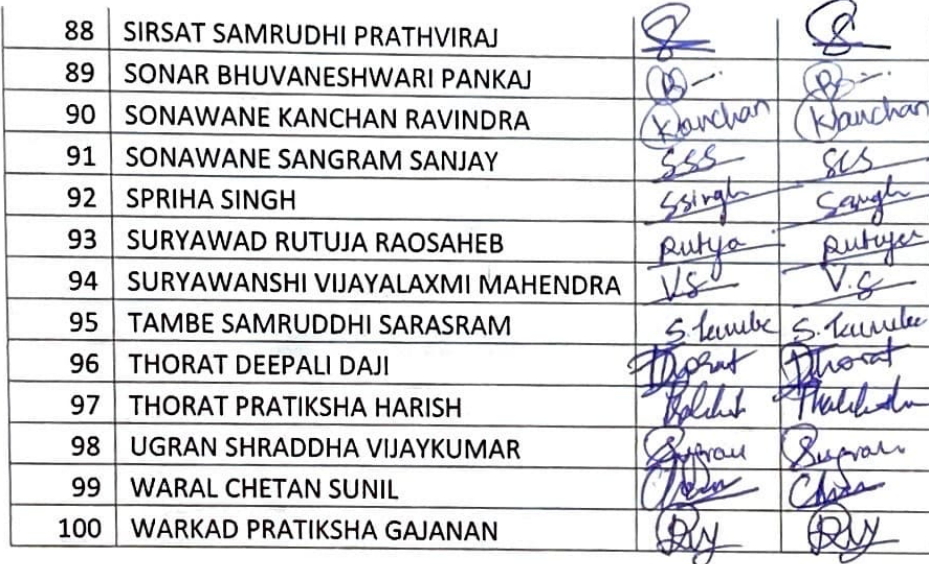 88 SIRSAT SAMRUDHI PRATHVIRAJ
89 SONAR BHUVANESHWARI PANKAJ B B
90 SONAWANE KANCHAN RAVINDRA Kanchan Kanchan
91 SONAWANE SANGRAM SANJAY SSS SSS
92 SPRIHA SINGH SSingh
93 SURYAWAD RUTUJA RAOSAHEB Rutuja Rutuja
94 SURYAWANSHI VIJAYALAXMI MAHENDRA VS V.S
95 TAMBE SAMRUDDHI SARASRAM S. Tambe S. Tambe
96 THORAT DEEPALI DAJI Dhorat Dhorat
97 THORAT PRATIKSHA HARISH
98 UGRAN SHRADDHA VIJAYKUMAR Sugran Sugran
99 WARAL CHETAN SUNIL
100 WARKAD PRATIKSHA GAJANAN